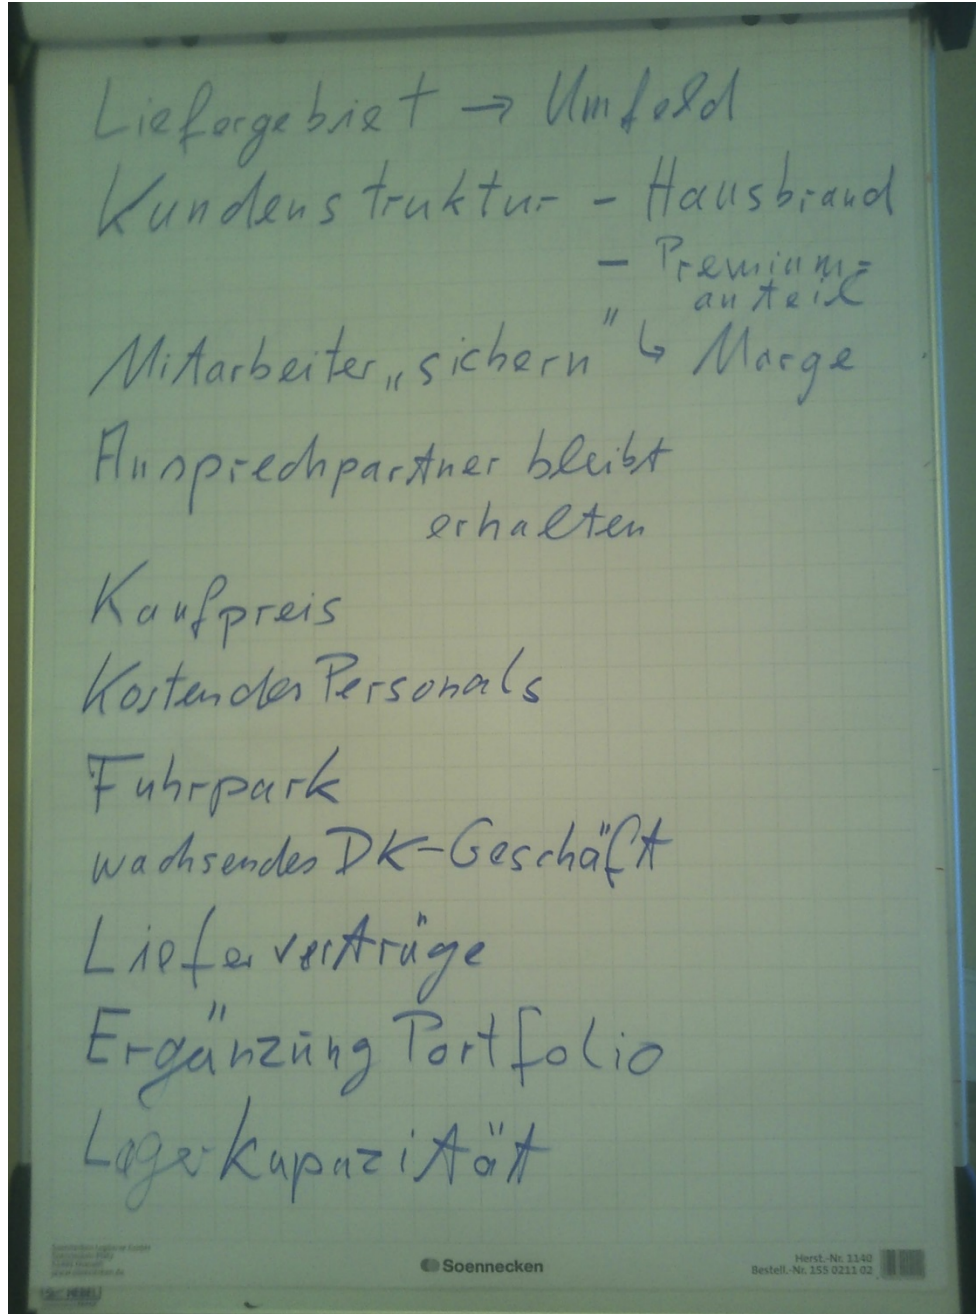 Liefergebiet → Umfeld
Kundenstruktur - Hausbrand
- Premium-
anteil
Mitarbeiter „sichern" ↳ Marge
Ansprechpartner bleibt
erhalten
Kaufpreis
Kosten des Personals
Fuhrpark
wachsendes DK-Geschäft
Lieferverträge
Ergänzung Portfolio
Lagerkapazität
Soennecken
Herst.-Nr. 1140
Bestell.-Nr. 155 0211 02